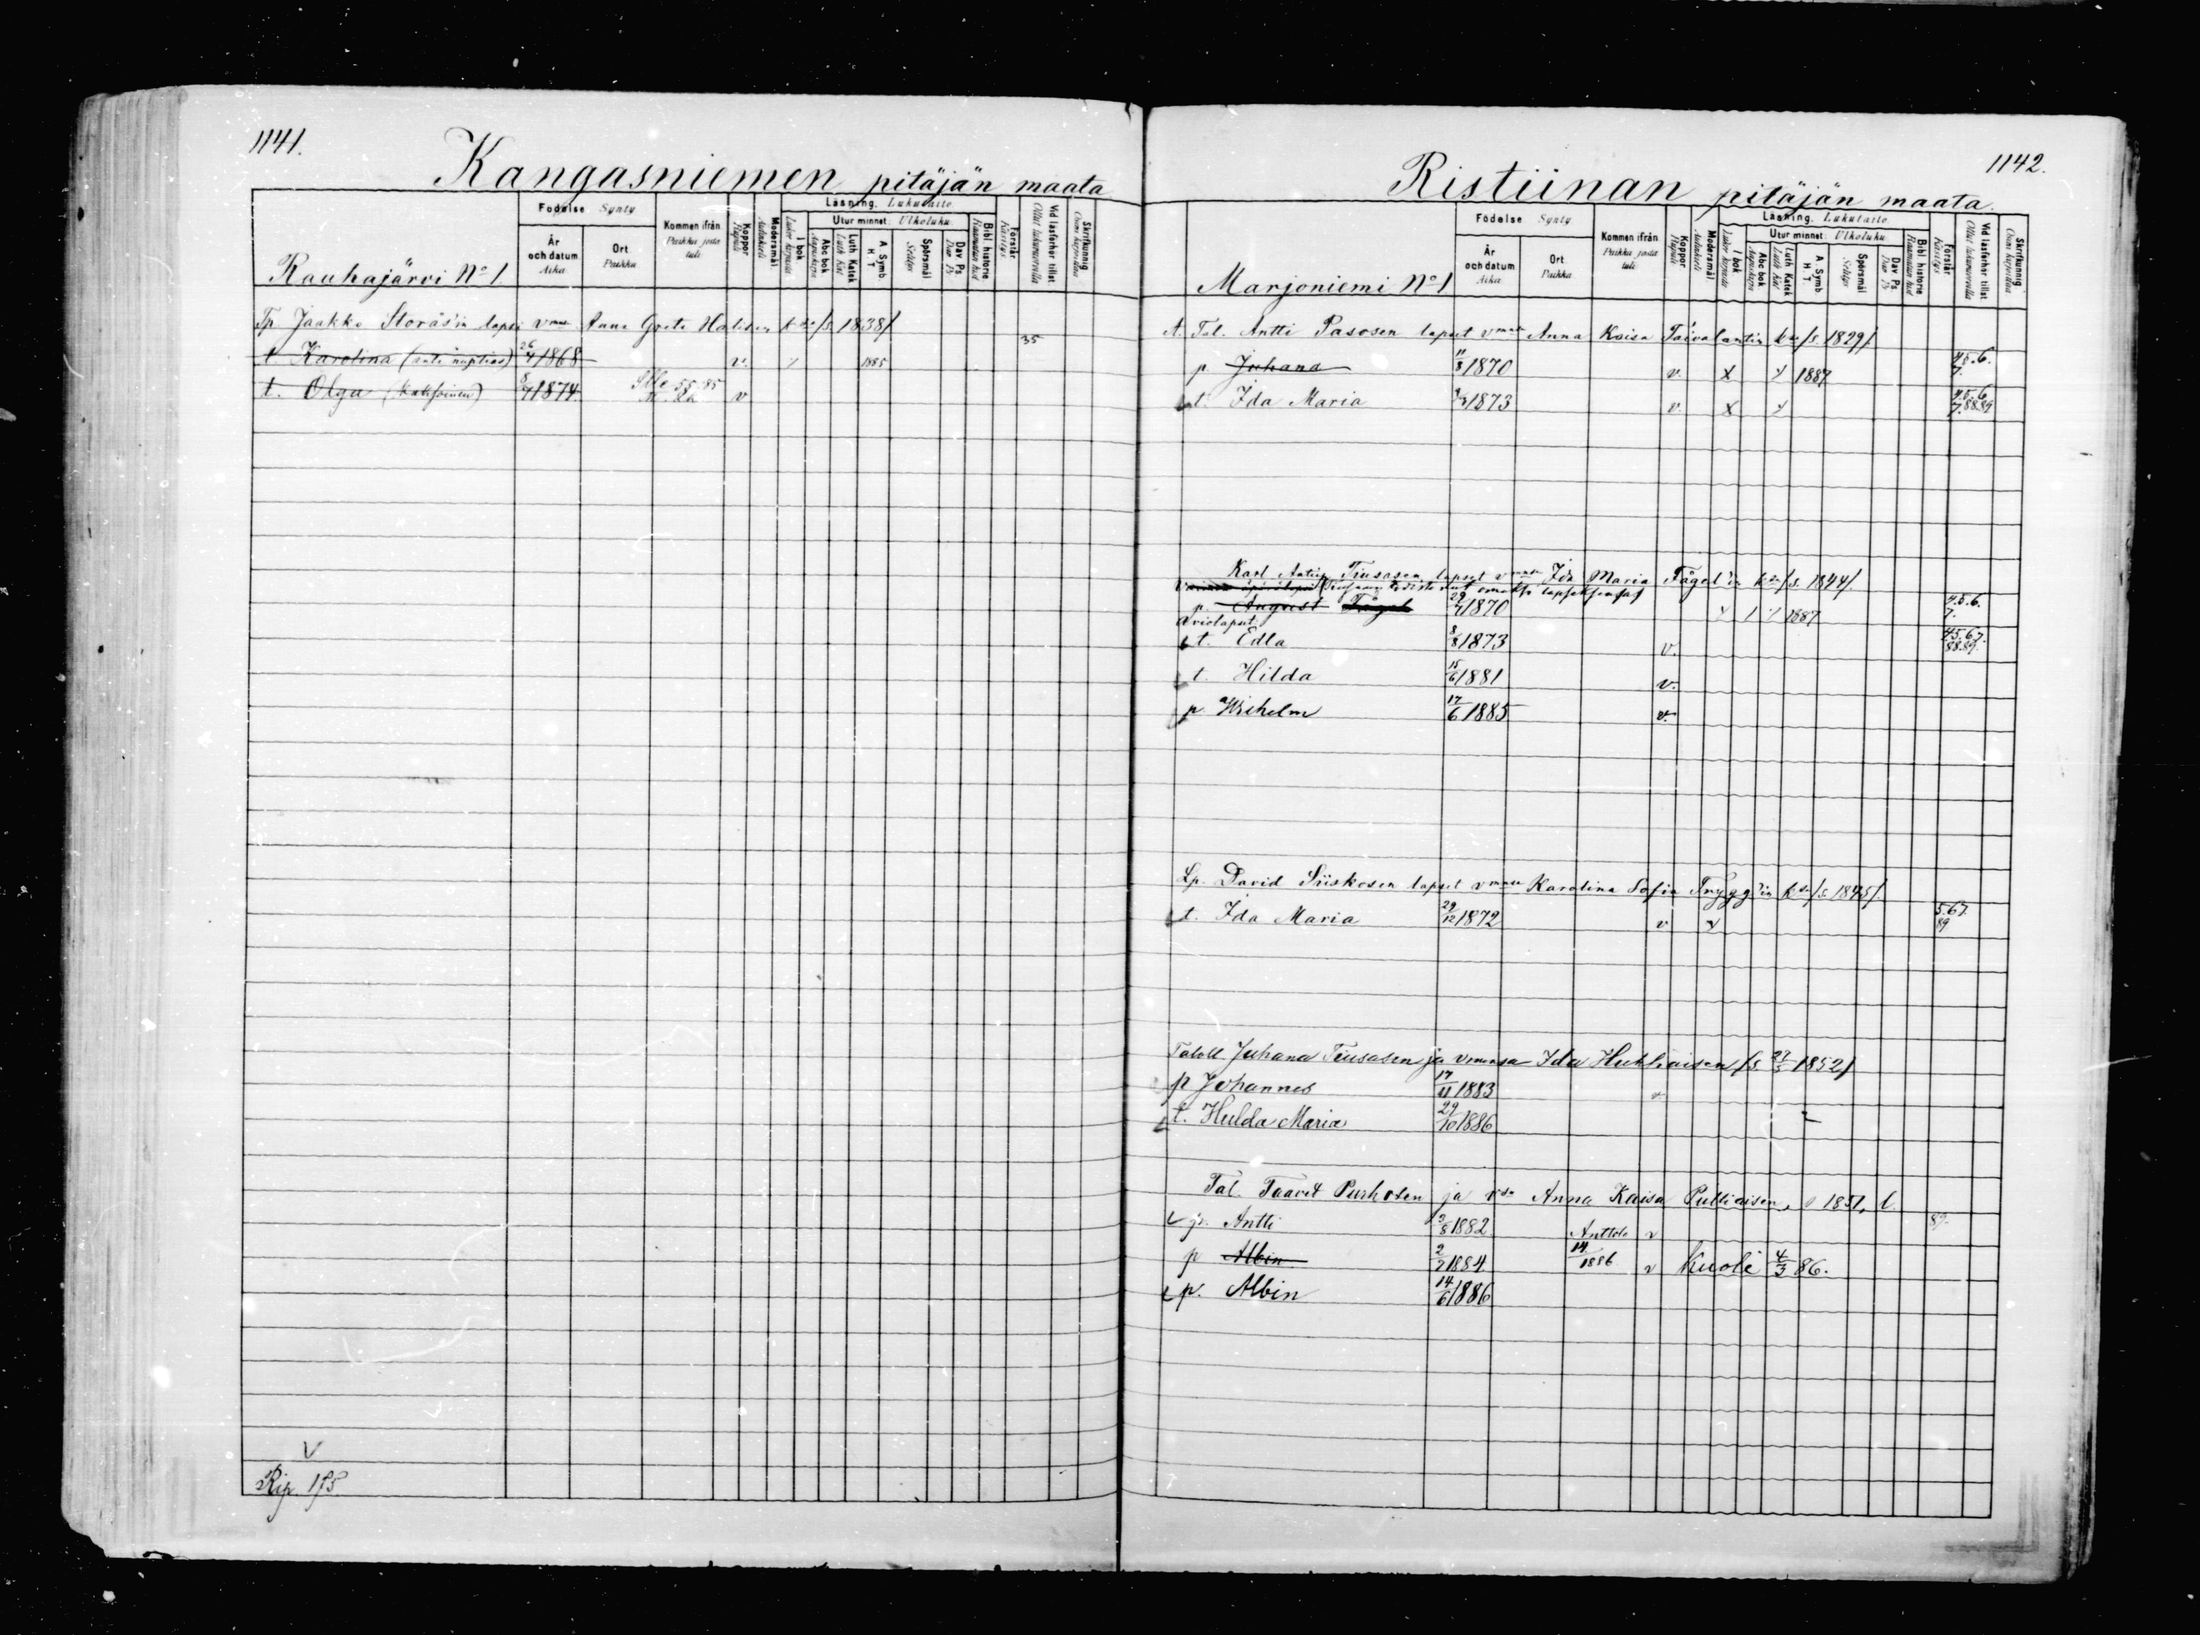 1141.
Kangasniemen pitäjän maata
Rauhajärvi No 1.
Födelse Synty
År och datum Aika
Ort Paikka
Kommen ifrån Paikka josta tuli
Koppor Rupuli
Modersmål
Läsning. Lukutaito.
I bok
Utur minnet: Ulkoluku.
Abc bok
Luth Katek
A. Symb. H. T
Spörsmål
Dav. Ps
Bibl. historie
Förstår Käsitys
Vid läsförhör tillst
Skrifkunnig
Tp. Jaakko Storås'in lapsi vmsta Anna Greta Halisen k:sa /s. 1838/
t Karolina (ante nuptias) 26/4 1868 v. 1885 35
t. Olga 8/7 1874. 55 85 v
Rip. 175
1142.
Ristiinan pitäjän maata.
Marjoniemi No 1
Födelse Synty
År och datum Aika
Ort Paikka
Kommen ifrån Paikka josta tuli
Koppor Rupuli
Modersmål
Läsning. Lukutaito
I bok
Utur minnet: Ulkoluku
Abc bok
Luth Katek
A. Symb H. T.
Spörsmål
Dav Ps
Bibl. historie
Förstår Käsitys
Vid läsförhör tillst
Skrifkunnig
A. Tal. Antti Pasosen lapset vmsta Anna Kaisa Taivalantin k:sa /s. 1829/
p Juhana 11/8 1870 v. x 1887 4.5.6. 7.
t. Ida Maria 1873 v. x 4.5.6. 7.88.89
Karl Antin Tiusasen lapset vmsta Ida Maria Fågel'in k:sa /s. 1844/.
p. August Fågel 29/7 1870 1887 4.5.6. 7.
Aviolapset.
t. Edla 8/8 1873 v. 4.5.6.7. 88.89.
t. Hilda 15/6 1881 v.
p Wilhelm 17/6 1885 v.
Lp. David Siiskosen lapset vmsta Karolina Sofia Trygg'in k:sa /s. 1845/.
t. Ida Maria 29/12 1872 v 5.6.7. 89
Taloll. Juhana Tiusasen ja vmonsa Ida Huhtiaisen /s. 27/5 1852/
p Johannes 17/11 1883 v
t. Hulda Maria 29/10 1886
Tal. Taavet Purhosen ja v:sa Anna Kaisa Pulliaisen, s 1851, l.
p. Antti 1882 Anttola v 89.
p Albin 2/7 1884 14/1886 v kuoli 4/3 86.
p. Albin 14/6 1886